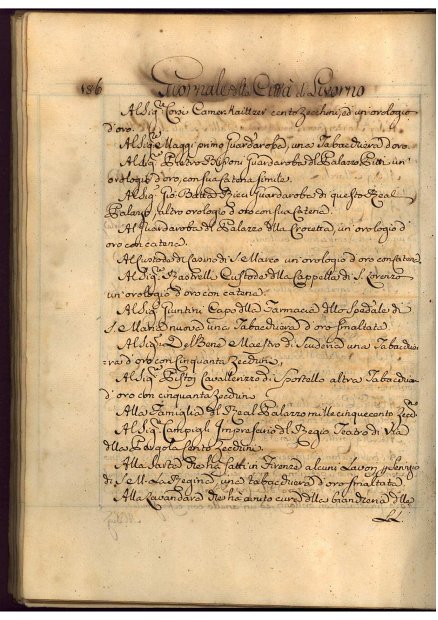 186 Giornale della Città di Livorno
Al Sig.r Corsi Camer Maitre cento Zecchini, ed un' orologio
d'oro.
Al Sig.re Maggi primo Guardaroba, una Tabacchiera d'oro.
Al Sig.r Pietro Guardaroba del Palazzo Pitti un'
orologio d'oro, con sua Catena simile.
Al Sig.r Gio Batta Ricci Guardaroba di questo Real
Palazzo, altro orologio d'oro con sua Catena.
Al Guardaroba del Palazzo della Crocetta, un' orologio d'
oro con catena.
Al Custode di Casino di S. Marco un' orologio d'oro con catena.
Al Sig.r Custode della Cappella di S. Lorenzo
un' orologio d'oro con catena.
Al Sig.r Giuntini Capo della Farmacia dello Spedale di
S. Maria nuova una Tabacchiera d'oro smaltata.
Al Sig.r Del Bene Maestro di Scuderia una Tabacchie
=ra d'oro con cinquanta Zecchini.
Al Sig.r Pistoj Cavallerizzo di Sportello altra Tabacchiera
d'oro con cinquanta Zecchini
Alla Famiglia del Real Palazzo mille cinquecento Zecch.
Al Sig.r Campigli Impresario del Regio Teatro di Via
della Pergola Cento Zecchini.
Alla Sarta che ha fatti in Firenze alcuni Lavori p servizio
di S. M. La Regina, una tabacchiera d'oro smaltata
Alla Lavandara che ha avuto cura della biancheria delle
LL